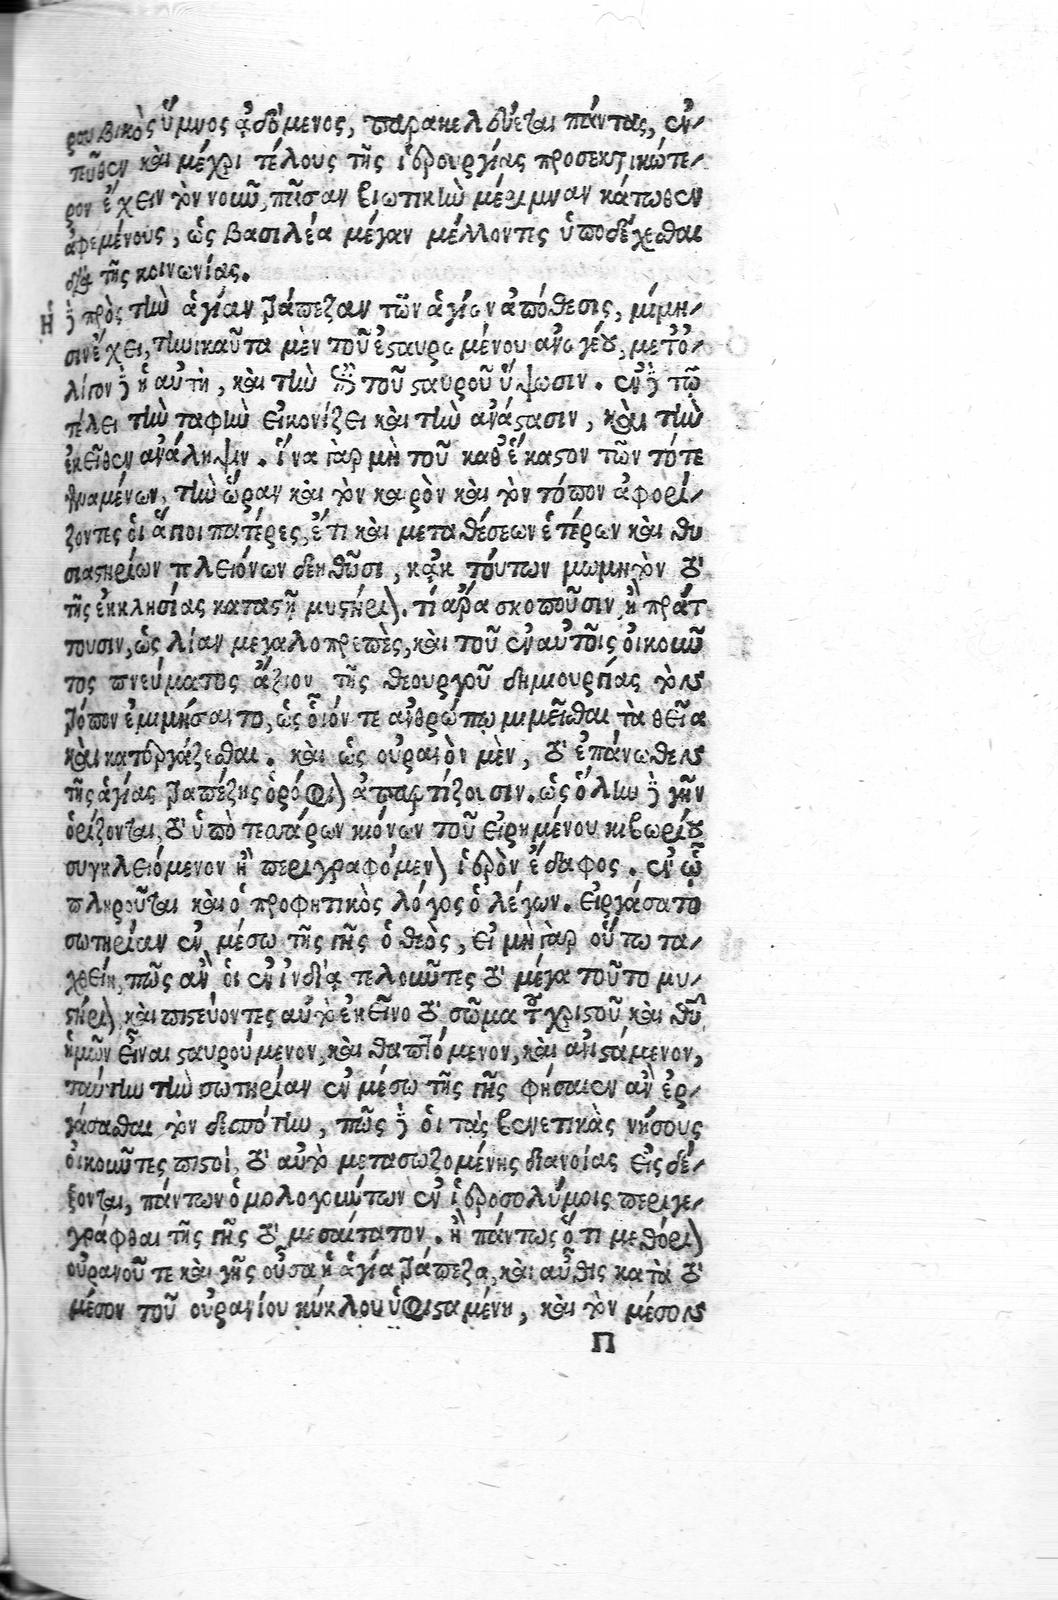 ρουβικὸς ὕμνος ᾀδόμενος, παρακελεύεται πάντας, ἐν-
τεῦθεν καὶ μέχρι τέλους τῆς ἱερουργίας προσεκτικώτε-
ρον ἔχειν τὸν νοῦν, πᾶσαν βιωτικὴν μέριμναν κάτωθεν
ἀφεμένους, ὡς βασιλέα μέγαν μέλλοντες ὑποδέχεσθαι
διὰ τῆς κοινωνίας.
Ἡ δὲ πρὸς τὴν ἁγίαν τράπεζαν τῶν ἁγίων ἀπόθεσις, μίμη-
σιν ἔχει, τηνικαῦτα μὲν τοῦ ἐσταυρωμένου ἀνωγέου, μετ' ὀ-
λίγον δὲ ἡ αὐτὴ, καὶ τὴν διὰ τοῦ σταυροῦ ὕψωσιν. ἐν δὲ τῷ
τέλει τὴν ταφὴν εἰκονίζει καὶ τὴν ἀνάστασιν, καὶ τὴν
ἐκεῖθεν ἀνάληψιν. ἵνα γὰρ μὴ τοῦ καθ' ἕκαστον τῶν τότε
δραμένων, τὴν ὥραν καὶ τὸν καιρὸν καὶ τὸν τόπον ἀφορί-
ζοντες οἱ ἅγιοι πατέρες, ἔτι καὶ μεταθέσεων ἑτέρων καὶ θυ
σιαστηρίων πλειόνων δεηθῶσι, κἀκ τούτων μωμητὸν τὸ
τῆς ἐκκλησίας καταστῇ μυστήριον. τί ἄρα σκοποῦσιν, ἢ πράτ
τουσιν, ὡς λίαν μεγαλοπρεπὲς, καὶ τοῦ ἐν αὐτοῖς οἰκοῦν
τος πνεύματος ἄξιον τῆς θεουργοῦ δημιουργίας τὸν
τρόπον ἐμιμήσαντο, ὡς οἷόν τε ἀνθρώπῳ μιμεῖσθαι τὰ θεῖα
καὶ κατεργάζεσθαι. καὶ ὡς οὐρανὸν μὲν, τὸ ἐπάνωθεν
τῆς ἁγίας τραπέζης ὀρόφιον ἀπαρτίζουσιν. ὡς ὅλην δὲ γῆν
ὁρίζονται, τὸ ὑπὸ τεσσάρων κιόνων τοῦ εἰρημένου κιβωρίου
συγκλειόμενον ἢ περιγραφόμενον ἱερὸν ἔδαφος. ἐν ᾧ
πληροῦται καὶ ὁ προφητικὸς λόγος ὁ λέγων. εἰργάσατο
σωτηρίαν ἐν μέσῳ τῆς γῆς ὁ θεὸς, εἰ μὴ γὰρ οὕτω τα-
χθείη, πῶς ἂν οἱ ἐν ἰνδίᾳ τελοῦντες τὸ μέγα τοῦτο μυ-
στήριον, καὶ πιστεύοντες αὐτὸ ἐκεῖνο τὸ σῶμα τοῦ χριστοῦ καὶ θεοῦ
ἡμῶν εἶναι σταυρούμενον, καὶ θαπτόμενον, καὶ ἀνιστάμενον,
ταύτην τὴν σωτηρίαν ἐν μέσῳ τῆς γῆς φήσαιεν ἂν ἐρ-
γάσασθαι τὸν δεσπότην, πῶς δὲ οἱ τὰς βενετικὰς νήσους
οἰκοῦντες πιστοὶ, τὸ αὐτὸ μετασωζομένης διανοίας εἰσδέ-
ξονται, πάντων ὁμολογούντων ἐν ἱεροσολύμοις περιγε-
γράφθαι τῆς γῆς τὸ μεσαίτατον. ἢ πάντως ὅτι μεθόριον
οὐρανοῦ τε καὶ γῆς οὖσα ἡ ἁγία τράπεζα, καὶ αὖθις κατὰ τὸ
μέσον τοῦ οὐρανίου κύκλου ὑφισταμένη, καὶ τὸν μέσον
Π